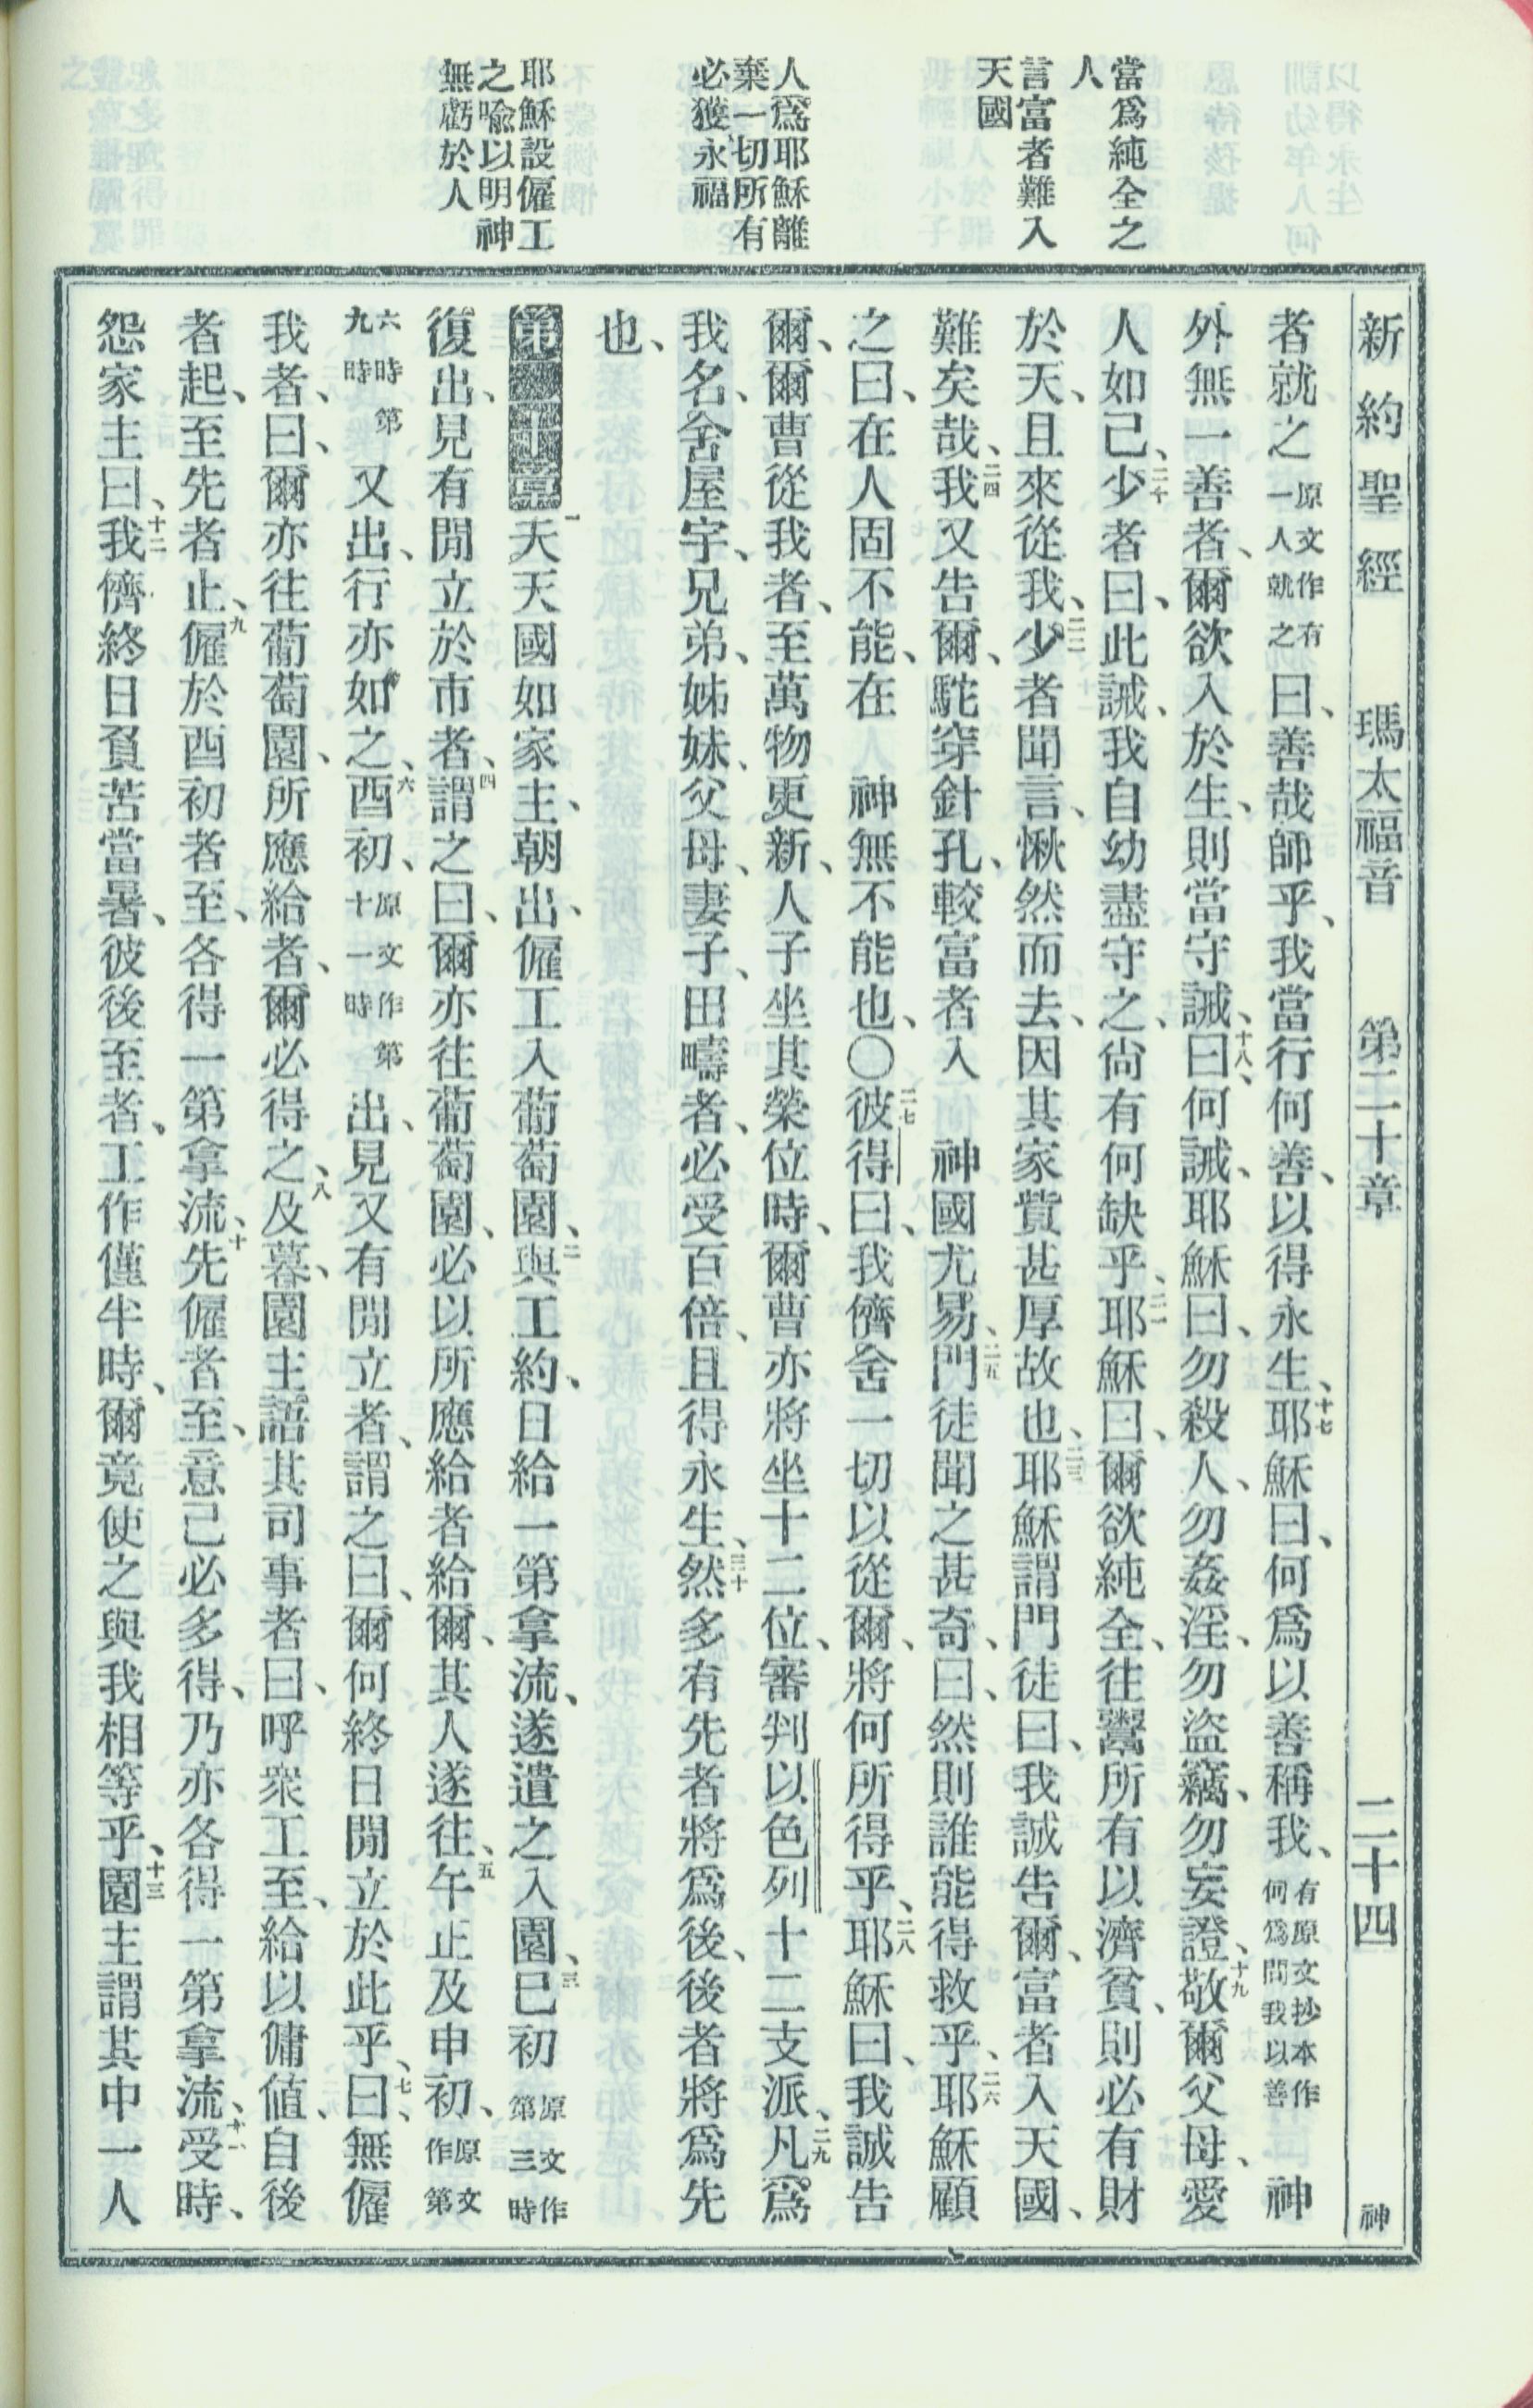 當爲純全之
人
言富者難入
天國
人爲耶穌離
棄一切所有
必獲永福
耶穌設僱工
之喻以明神
無虧於人
新約聖經 瑪太福音 第二十章 二十四 神
者就之原文作有一人就之曰、善哉師乎、我當行何善、以得永生、十七耶穌曰、何爲以善稱我、有原文抄本作何爲問我以善 神
外無一善者、爾欲入於生、則當守誡、十八曰、何誡、耶穌曰、勿殺人、勿姦淫、勿盜竊、勿妄證、十九敬爾父母、愛
人如己、二十少者曰、此誡、我自幼盡守之、尙有何缺乎、二一耶穌曰、爾欲純全、往鬻所有以濟貧、則必有財
於天、且來從我、二二少者聞言、愀然而去、因其家貲甚厚故也、二三耶穌謂門徒曰、我誠告爾、富者入天國、
難矣哉、二四我又告爾、駝穿針孔、較富者入 神國尤易、二五門徒聞之甚奇、曰、然則誰能得救乎、二六耶穌顧
之曰、在人固不能、在 神無不能也、〇二七彼得曰、我儕舍一切以從爾、將何所得乎、二八耶穌曰、我誠告
爾、爾曹從我者、至萬物更新、人子坐其榮位時、爾曹亦將坐十二位、審判以色列十二支派、二九凡爲
我名、舍屋宇、兄弟、姊妹、父母、妻子、田疇者、必受百倍、且得永生、三十然多有先者將爲後、後者將爲先
也、
第二十章一天天國如家主、朝出、僱工入葡萄園、二與工約、日給一第拿流、遂遣之入園、三巳初原文作第三時
復出、見有閒立於市者、四謂之曰、爾亦往葡萄園、必以所應給者給爾、其人遂往、五午正及申初、原文作第
六時第九時又出、行亦如之、六酉初、原文作第十一時出、見又有閒立者、謂之曰、爾何終日閒立於此乎、七曰、無僱
我者、曰、爾亦往葡萄園、所應給者、爾必得之、八及暮、園主語其司事者曰、呼衆工至、給以傭値、自後
者起、至先者止、九僱於酉初者至、各得一第拿流、十先僱者至、意己必多得、乃亦各得一第拿流、十一受時、
怨家主曰、十二我儕終日負苦當暑、彼後至者、工作僅半時、爾竟使之與我相等乎、十三園主謂其中一人